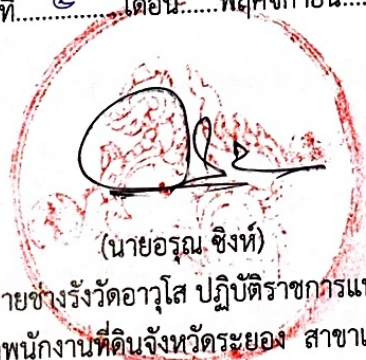 ที่.............๕..............เดือน......พฤศจิกายน....
(นายอรุณ ซิงห์)
ายช่างรังวัดอาวุโส ปฏิบัติราชการแท
พนักงานที่ดินจังหวัดระยอง สาขาแ